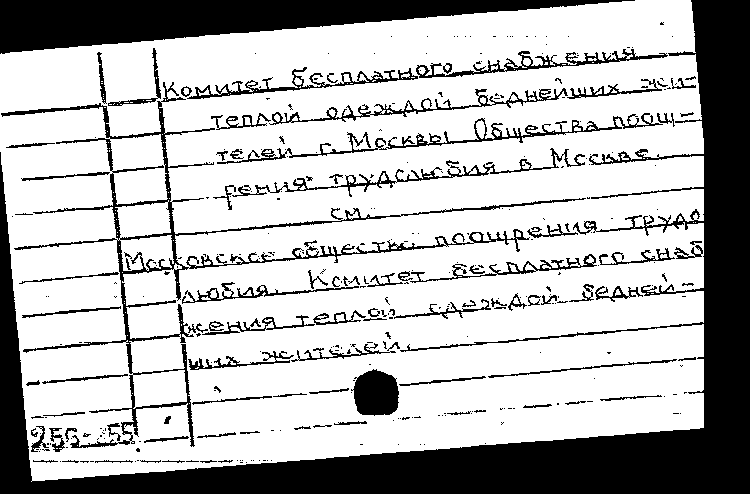 Комитет бесплатного снабжения
теплой одеждой беднейших жи-
телей г. Москвы Общества поощ-
рения трудолюбия в Москве.
см.
Московское общество поощрения трудо
любия. Комитет бесплатного снаб
жения теплой одеждой бедней-
ших жителей.
256-55